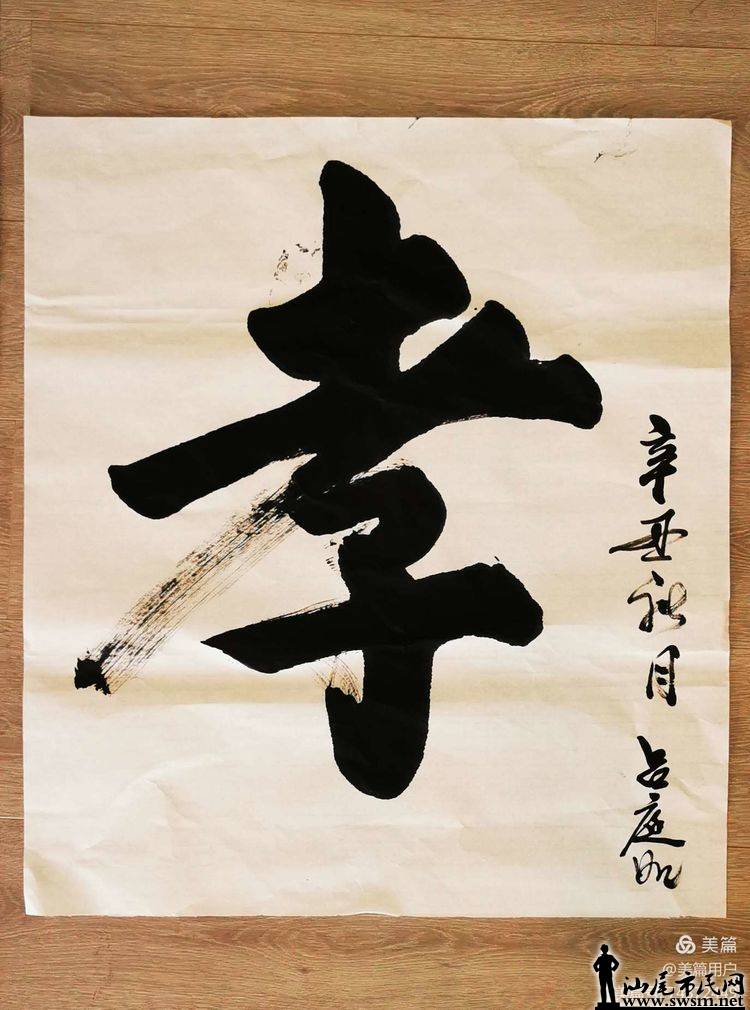 孝
辛丑秋月 占庭如
美篇
@美篇用户
汕尾市民网
www.swsm.net